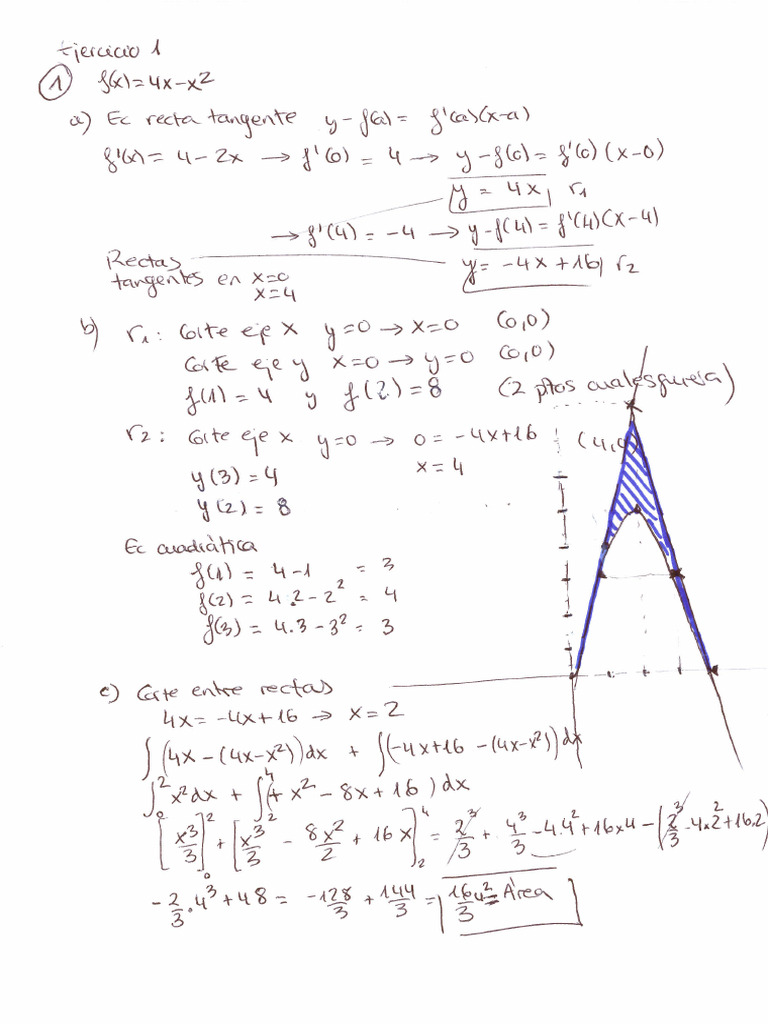 Ejercicio 1
① f(x)=4x-x²
a) Ec recta tangente y-f(a)= f'(a)(x-a)
f'(x)= 4-2x → f'(0) = 4 → y-f(0)=f'(0)(x-0)
y = 4x, r₁
→ f'(4)=-4 → y-f(4)=f'(4)(x-4)
Rectas tangentes en x=0 x=4
y=-4x+16, r₂
b) r₁: Corte eje x y=0 → x=0 (0,0)
Corte eje y x=0 → y=0 (0,0)
f(1)=4 y f(2)=8 (2 ptos cualesquiera)
r₂: Corte eje x y=0 → 0=-4x+16 (4,0)
x=4
y(3)=4
y(2)=8
Ec cuadrática
f(1) = 4-1 = 3
f(2) = 4.2-2² = 4
f(3) = 4.3-3² = 3
c) Corte entre rectas
4x=-4x+16 → x=2
∫(4x-(4x-x²))dx + ∫(-4x+16-(4x-x²))dx
∫₀² x²dx + ∫₂⁴(+x²-8x+16)dx
[x³/3]₀² + [x³/3 - 8x²/2 + 16x]₂⁴ = 2³/3 + 4³/3 - 4.4² + 16x4 - (2³/3 - 4x2² + 16.2)
-2/3.4³+48 = -128/3 + 144/3 = 16/3 u² = Área